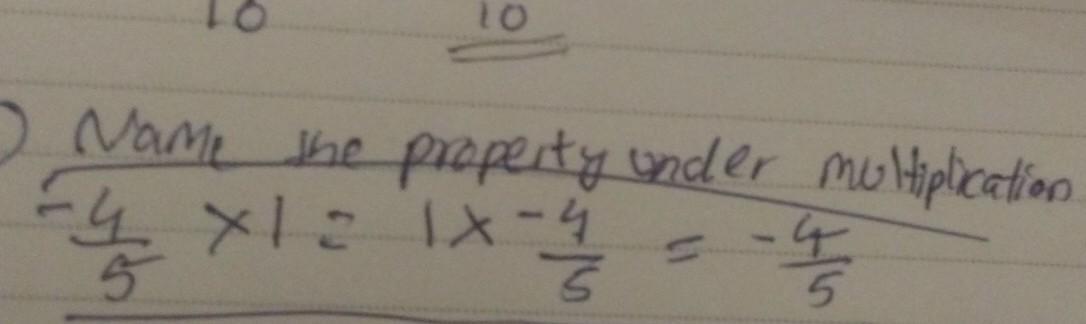 10 10
) Name the property under multiplication
-4/5 × 1 = 1 × -4/5 = -4/5